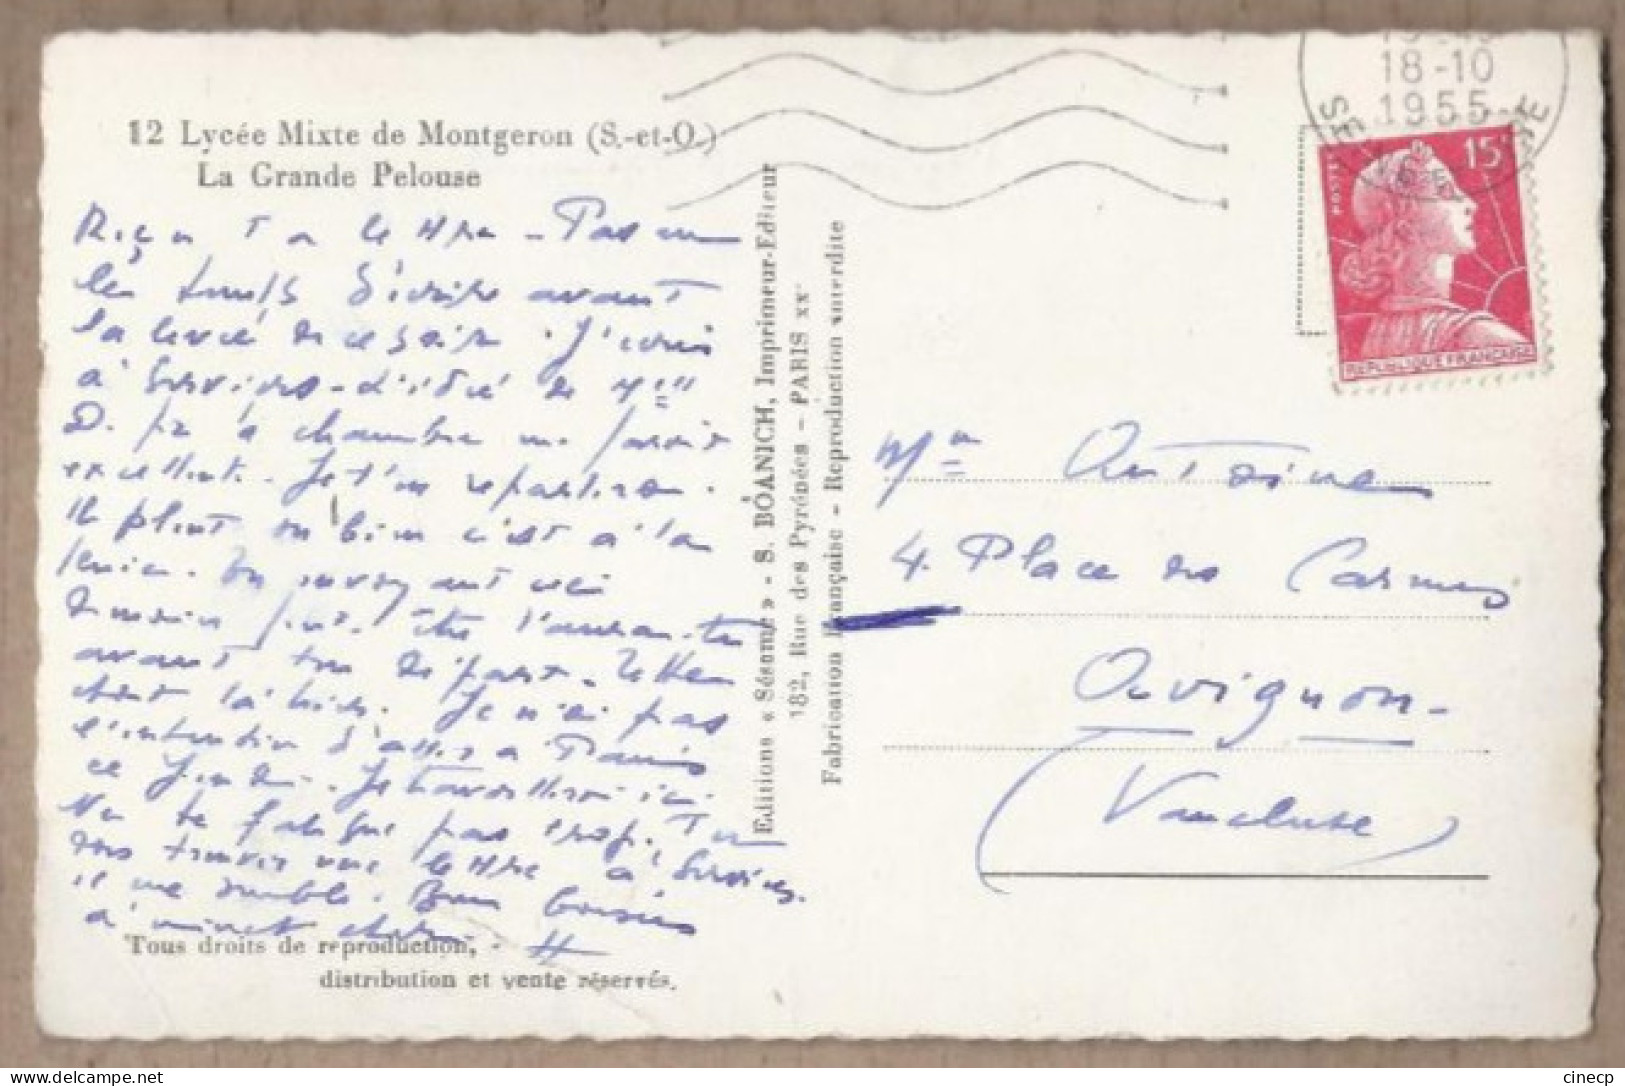 12 Lycée Mixte de Montgeron (S.-et-O.)
La Grande Pelouse
Reçu ta lettre - Pas eu
les temps d'écrire avant
la levée de ce soir. J'écris
à Surviers - L'idée de Mlle
D. pr la chambre me paraît
excellente. Je t'en reparlerai.
Il pleut ou bien c'est à la
En envoyant ceci
demain peut-être l'auras-tu
avant ton départ.
Je n'ai pas
l'intention d'aller à Paris
ce jeudi. Je travaillerai ici.
Ne te fatigue pas trop. Tu
vas trouver une lettre à Surviers,
il me semble. Bons baisers
à minet chéri. H
Tous droits de reproduction,
distribution et vente réservés.
Editions « Sésame » - S. BÔANICH, Imprimeur-Editeur
182, Rue des Pyrénées - PARIS XXe
Fabrication Française - Reproduction interdite
18-10
1955
SE
E
POSTES
15F
REPUBLIQUE FRANÇAISE
Me Antoine
4. Place des Carmes
Avignon-
(Vaucluse)
cinecp